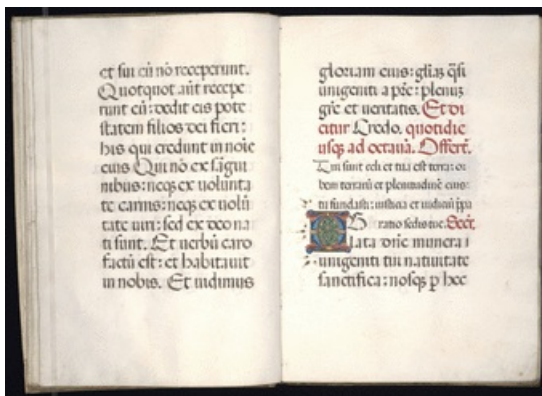 et sui eū nō receperunt.
Quotquot aūt recepe
runt eū: dedit eis pote
statem filios dei fieri:
his qui credunt in noīe
eius Qui nō ex sāgui
nibus: neqꝫ ex uolunta
te carnis: neqꝫ ex uolū
tate uiri: sed ex deo na
ti sunt. Et uerbū caro
factū est: et habitauit
in nobis. Et uidimus
gloriam eius: gl̄iaꝫ q̄si
unigeniti a pr̄e: plenuꝫ
gr̄e et ueritatis. Et di
citur Credo. quotidie
usqꝫ ad octauā. Offert̄.
Tui sunt celi et tua est terra: or
bem terrarū et plenitudinē eius
tu fundasti: iusticia et iudiciū p̄pa
ratio sedis tue. Secr̄.
Oblata dn̄e munera
unigeniti tui natiuitate
sanctifica: nosqꝫ p hec